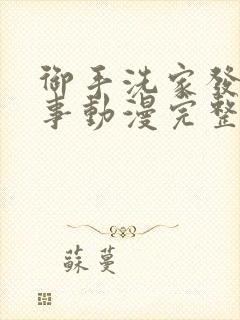 御手洗家發
事動漫完整
蘇蔓